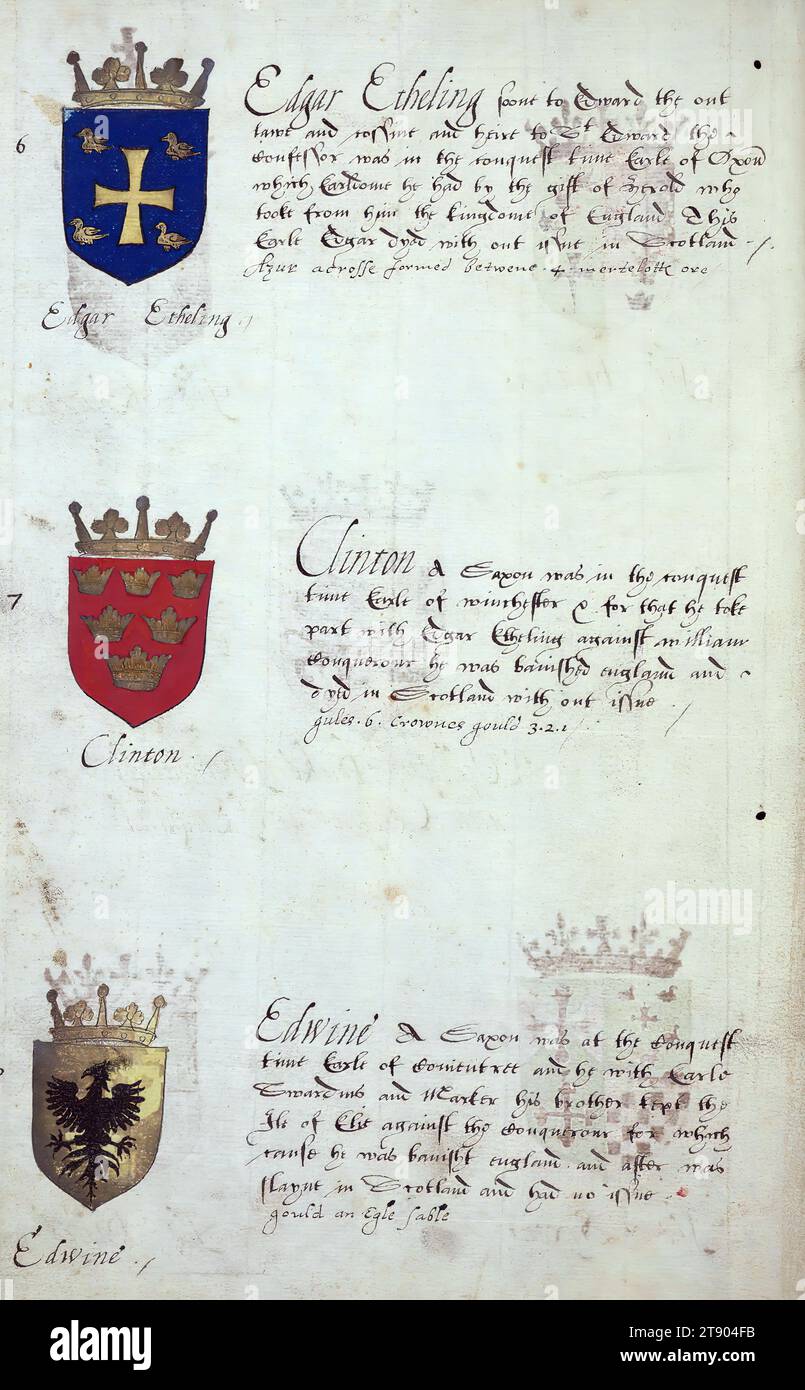 6
Edgar Etheling sone to Edward the out
lawe and cossine and heire to St Edward the
Confessor was in the conquest time Earle of Oxon
which Earldome he had by the gift of Herold who
tooke from him the kingdome of England This
Earle Edgar dyed with out issue in Scotland
Azur a crosse formed betwene 4 mertelotts ore
Edgar Etheling
7
Clinton A Saxon was in the conquest
time Earle of winchester & for that he toke
part with Edgar Etheling against william
Conquerour he was banished england and
dyed in Scotland with out issue
gules. 6. Crownes gould 3.2.1
Clinton
Edwine A Saxon was at the Conquest
time Earle of Coventree and he with Earle
Swardus and Marker his brother kept the
Ile of Elie against the Conquerour for which
cause he was banisht england and after was
slayne in Scotland and had no issue
gould an Egle sable
Edwine
alamy
alamy
Image ID: 2T904FB
www.alamy.com